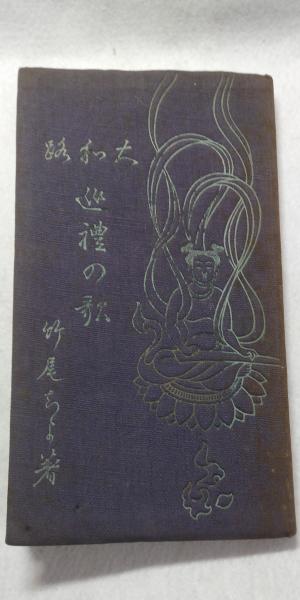 大和路
巡禮の歌
竹尾ちよ著